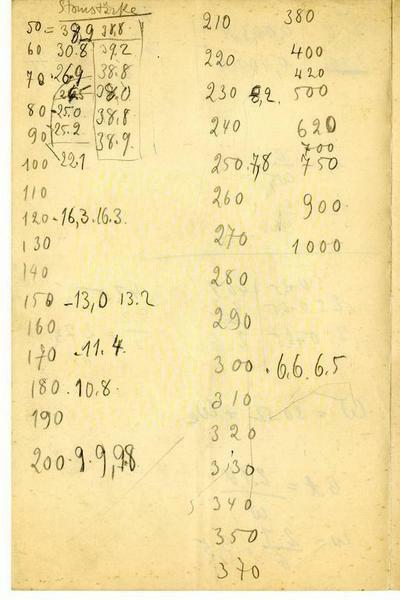 50 = 38,9 38.8.
60 30.8 39.2
70 26.9 38.8
38.0
80 - 25.0 38.8
90 25.2 38.9.
100 22.1
110
120 - 16,3. 16.3.
130
140
150 - 13,0 13.2
160
170 - 11.4.
180. 10.8.
190
200. 9. 9,98
210
220
230 8,2.
240
250. 7,8
260
270
280
290
300. 6,6. 6.5
310
320
330
340
350
370
380
400
420
500
620
700
750
900
1000